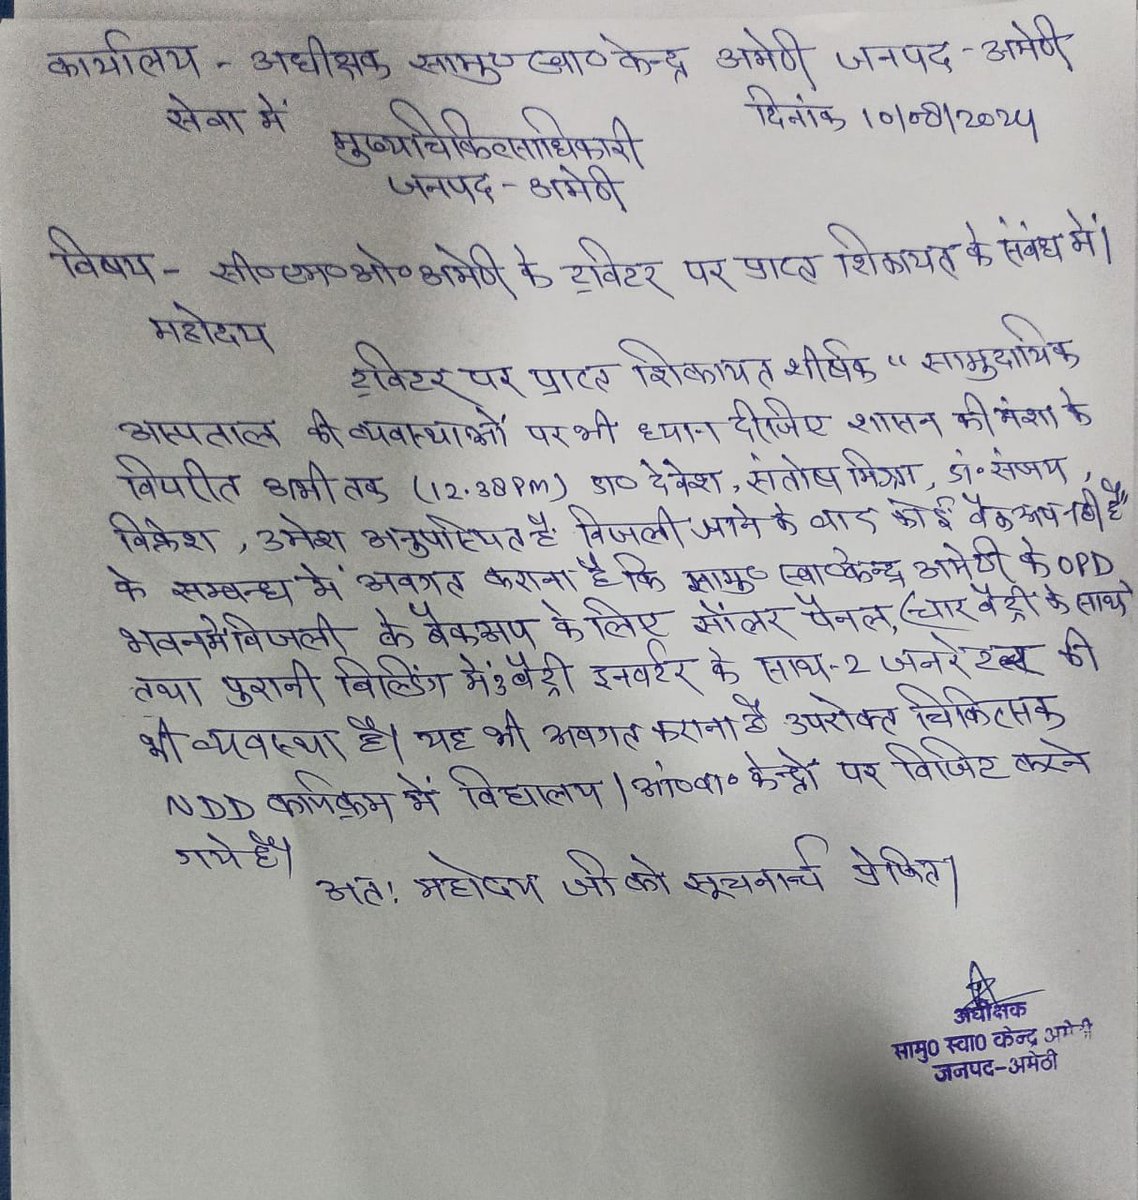 कार्यालय - अधीक्षक सामु० स्वा० केन्द्र अमेठी जनपद - अमेठी
सेवा में
दिनांक 10/08/2024
मुख्यचिकित्साधिकारी
जनपद - अमेठी
विषय - सी०एम०ओ० अमेठी के ट्विटर पर प्राप्त शिकायत के संबंध में।
महोदय
ट्विटर पर प्राप्त शिकायत शीर्षक " सामुदायिक
अस्पताल की व्यवस्थाओं पर भी ध्यान दीजिए शासन की मंशा के
विपरीत अभी तक (12.38PM) डा० देवेश, संतोष मिश्रा, डॉ० संजय,
उमेश अनुपस्थित है बिजली जाने के बाद कोई बैकअप नही है"
के सम्बन्ध में अवगत कराना है कि सामु० स्वा०केन्द्र अमेठी के OPD
भवन में बिजली के बैकअप के लिए सोंलर पैनल, (चार बैट्री के साथ)
तथा पुरानी बिल्डिंग में 3 बैट्री इनवर्टर के साथ-2 की
भी व्यवस्था है। यह भी अवगत कराना है उपरोक्त चिकित्सक
NDD कार्यक्रम में विद्यालय / आं०बा० केन्द्रों पर विजिट करने
गये है।
अत: महोदय जी को सूचनार्थ प्रेषित।
अधीक्षक
सामु0 स्वा0 केन्द्र अमेठी
जनपद-अमेठी